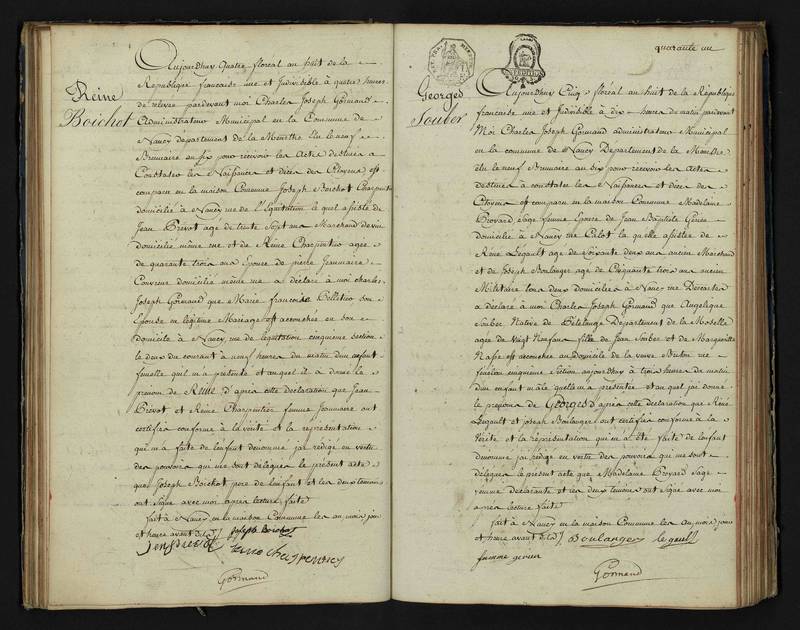 Reine
Boichot
Aujourdhuy quatre floréal an huit de la
République francaise une et Indivisible à quatre heures
de relevée pardevant moi Charles Joseph Gormand
Administrateur Municipal en la Commune de
Nancy département de la Meurthe Elu le neuf
Brumaire an six pour recevoir les Actes destinés a
Constater les Naissances et décès des Citoyens est
comparu en la maison Commune Joseph Boichot Charpentier
domicilié à Nancy rue de l'Equitation le quel assisté de
Jean Brevot agé de trente sept ans Marchand de vin
domicilié même rue et de Reine Charpentier agée
de quarante trois ans Epouse de pierre Jeanmaire
Couvreur domicilié même rue a déclaré à moi charles
Joseph Gormand que Marie francoise Pelletier son
Epouse en légitime Mariage est accouchée en son
domicile à Nancy rue de lequitation cinquieme section
le deux du courant à neuf heures du matin dun enfant
femelle quil m'a présenté et auquel il a donné le
prenom de Reine d'après cette déclaration que Jean
Brevot et Reine Charpentier femme Jeanmaire ont
certifié conforme à la vérité et la représentation
qui m'a faite de lenfant denommé jai rédigé en vertu
des pouvoirs qui me sont délégués le présent acte
que Joseph Boichot pere de lenfant et les deux temoins
ont Signé avec moi après lecture faite
fait à Nancy en la maison Commune les an, mois, jour
et heure avant dits
joseph Boichot
Gormand
quarante un
Georges
Souber
Aujourdhuy Cinq floréal an huit de la République
francaise une et Indivisible à dix heures du matin pardevant
Moi Charles Joseph Gormand administrateur Municipal
en la commune de Nancy Département de la Meurthe
élu le neuf Brumaire an six pour recevoir les Actes
destinés a constater les Naissances et décès des
Citoyens est comparu en la maison Commune Madelaine
Provard sage femme Epouse de Jean Baptiste
domiciliée à Nancy rue Callot la quelle assistée de
René Legault agé de soixante deux ans ancien Marchand
et de Joseph Boulanger agé de Cinquante trois ans ancien
Militaire tous deux domiciliés à Nancy rue Descartes
a déclaré à moi Charles Joseph Gormand que Angelique
Souber Native de Département de la Moselle
agée de vingt Neuf ans fille de Jean Souber et de Marguerite
est accouchée en domicile de la veuve rue
cinquieme section aujourdhuy à trois heures du matin
dun enfant mâle quelle m'a présenté et auquel jai donné
le prenom de Georges d'après cette déclaration que René
Legault et joseph Boulanger ont certifié conforme à la
Vérité et la représentation qui m'a été faite de lenfant
denommé jai rédigé en vertu des pouvoirs qui me sont
délégués le présent acte que Madelaine Provard sage
femme déclarante et les deux témoins ont Signé avec moi
après lecture faite
fait à Nancy en la maison Commune les an, mois, jour
et heure avant dits Boulanger le gault
Gormand